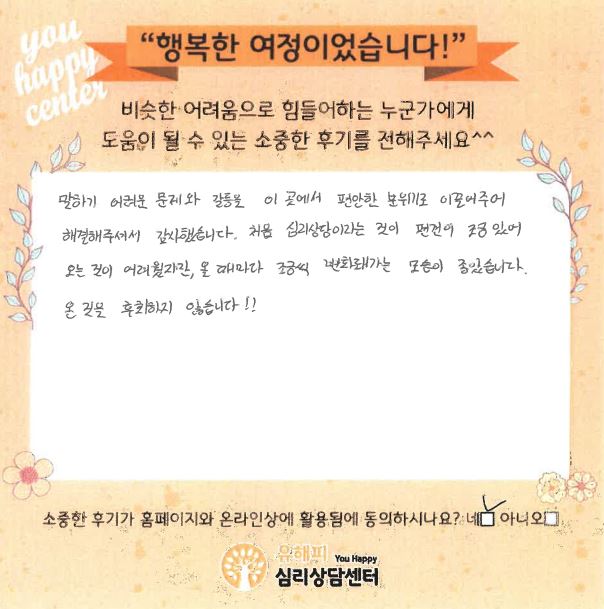 you
happy
center
“행복한 여정이었습니다!”
비슷한 어려움으로 힘들어하는 누군가에게
도움이 될 수 있는 소중한 후기를 전해주세요^^
말하기 어려운 문제와 갈등을 이 곳에서 편안한 분위기로 이끌어주어
해결해주셔서 감사했습니다. 처음 심리상담이라는 것이 편견이 조금 있어
오는 것이 어려웠지만, 올 때마다 조금씩 변화돼가는 모습이 좋았습니다.
온 것을 후회하지 않습니다!!
소중한 후기가 홈페이지와 온라인상에 활용됨에 동의하시나요? 네 아니오
유해피 You Happy
심리상담센터